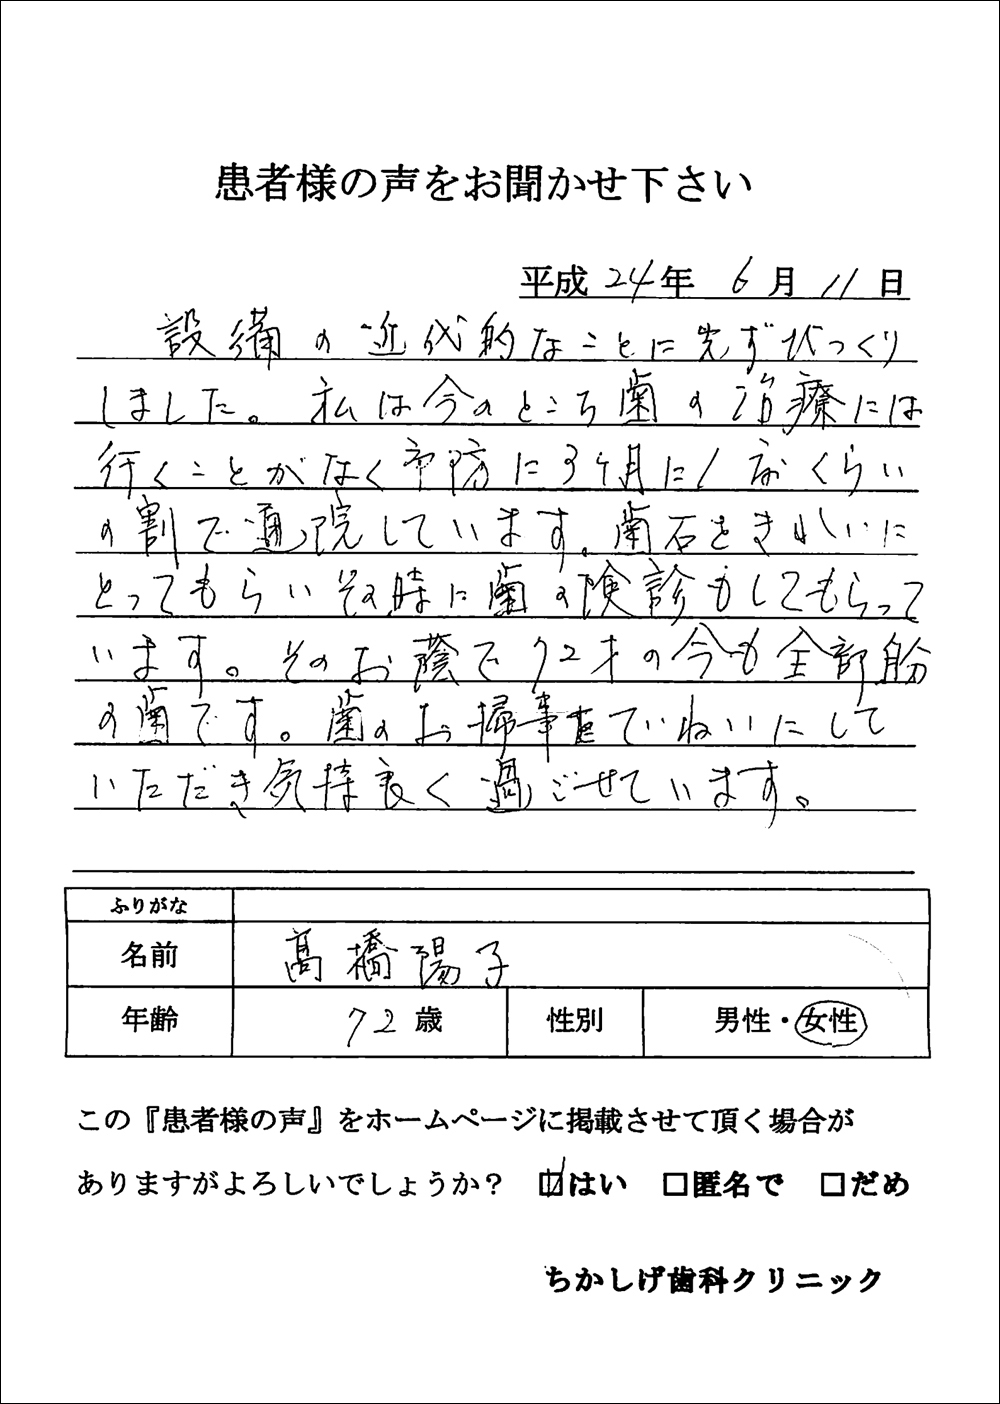 患者様の声をお聞かせ下さい
平成 24年 6月 11日
設備の近代的なことに先ずびっくり
しました。私は今のところ歯の治療には
行くことがなく予防に3ヶ月に1度くらい
の割で通院しています。歯石をきれいに
とってもらいその時に歯の検診もしてもらって
います。そのお蔭で72才の今も全部自分
の歯です。歯のお掃事をていねいにして
いただき気持良く過ごせています。
ふりがな
名前 髙橋陽子
年齢 72歳 性別 男性・女性
この『患者様の声』をホームページに掲載させて頂く場合が
ありますがよろしいでしょうか? □はい □匿名で □だめ
ちかしげ歯科クリニック